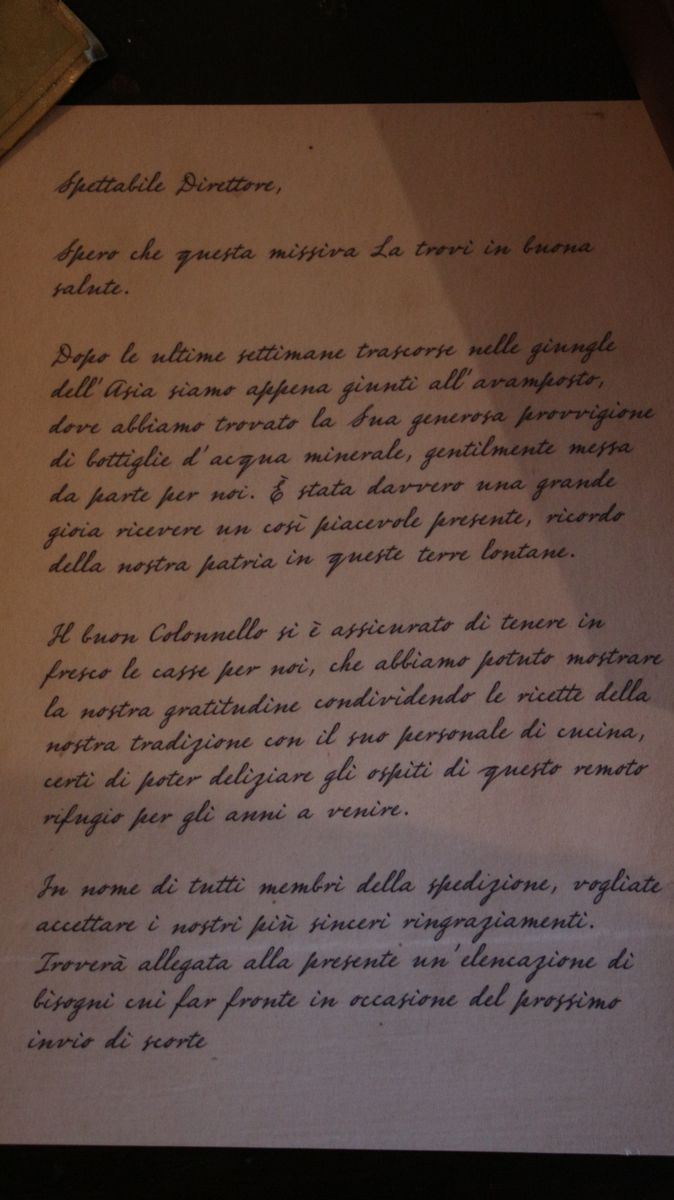 Spettabile Direttore,
Spero che questa missiva La trovi in buona
salute.
Dopo le ultime settimane trascorse nelle giungle
dell'Asia siamo appena giunti all'avamposto,
dove abbiamo trovato la Sua generosa provvigione
di bottiglie d'acqua minerale, gentilmente messa
da parte per noi. È stata davvero una grande
gioia ricevere un così piacevole presente, ricordo
della nostra patria in queste terre lontane.
Il buon Colonnello si è assicurato di tenere in
fresco le casse per noi, che abbiamo potuto mostrare
la nostra gratitudine condividendo le ricette della
nostra tradizione con il suo personale di cucina,
certi di poter deliziare gli ospiti di questo remoto
rifugio per gli anni a venire.
In nome di tutti membri della spedizione, vogliate
accettare i nostri più sinceri ringraziamenti.
Troverà allegata alla presente un'elencazione di
bisogni cui far fronte in occasione del prossimo
invio di scorte